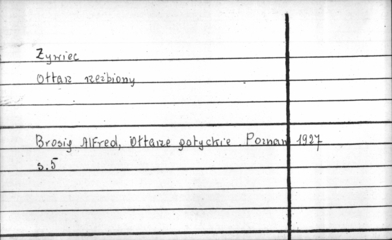 Żywiec
Ołtarz rzeźbiony
Brosig Alfred, Ołtarze gotyckie. Poznań 1927
s.5